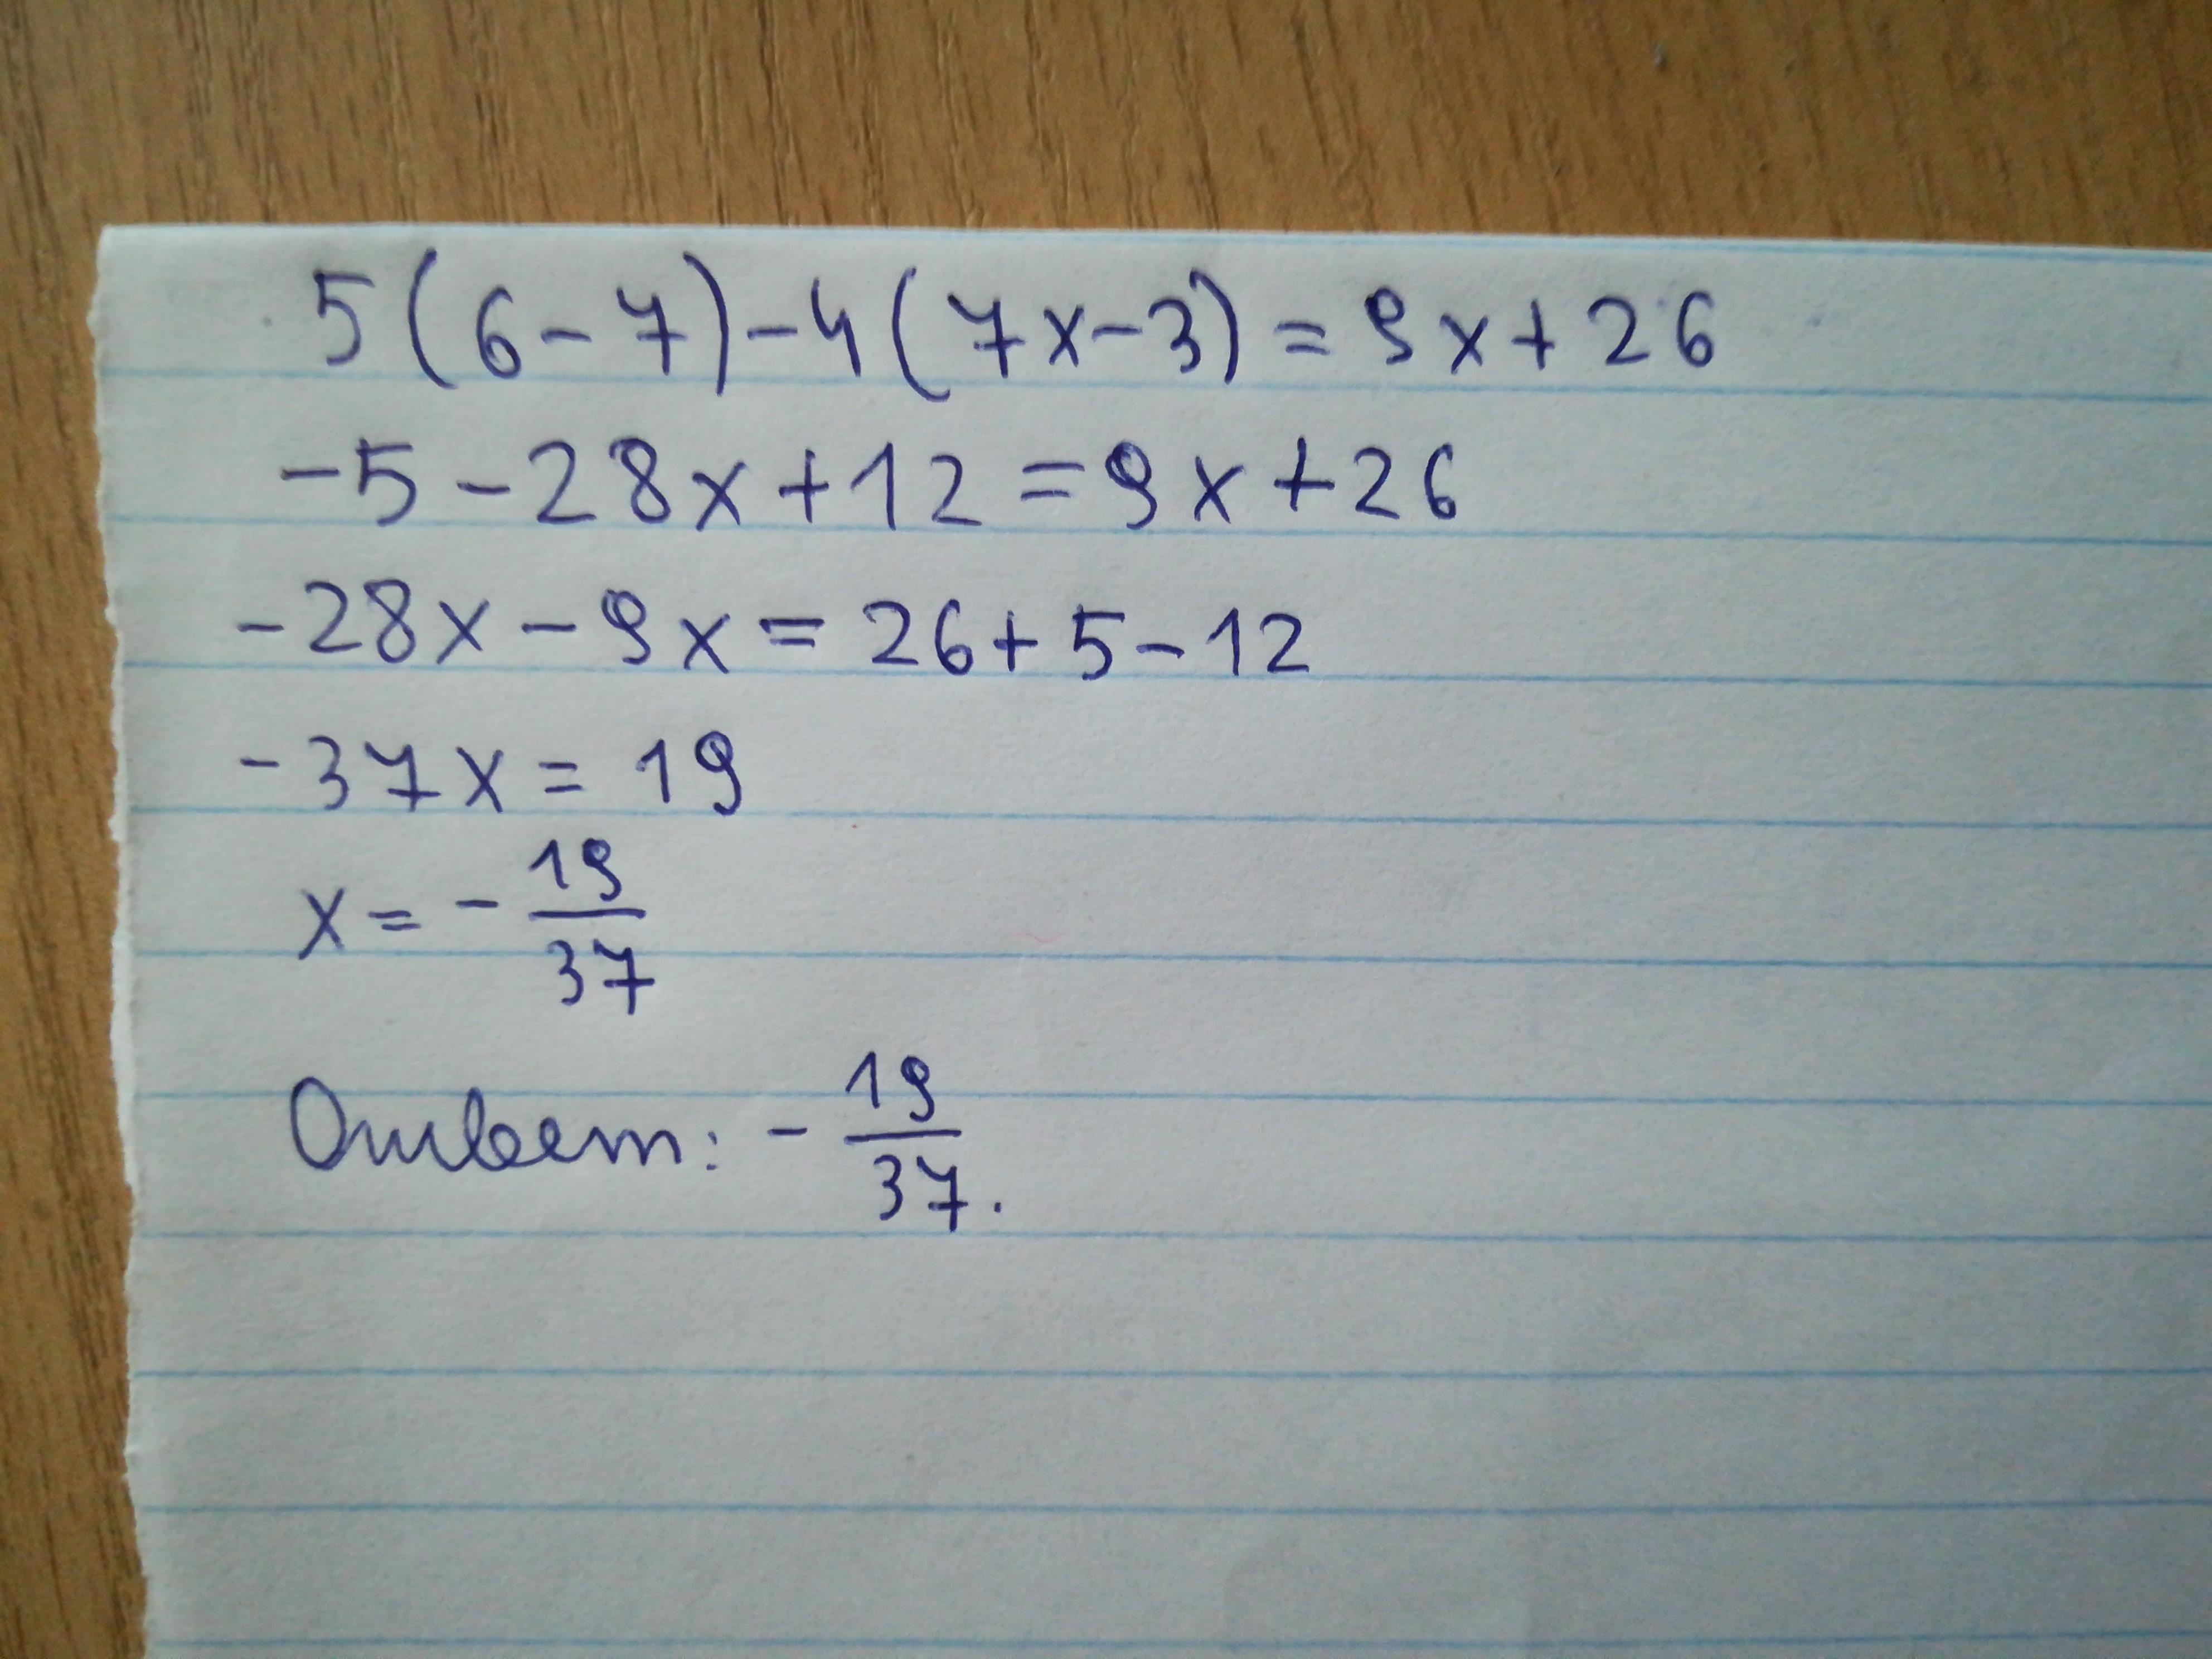 5(6-7)-4(7x-3)=9x+26
-5-28x+12=9x+26
-28x-9x=26+5-12
-37x=19
x=-19/37
Ответ: -19/37.